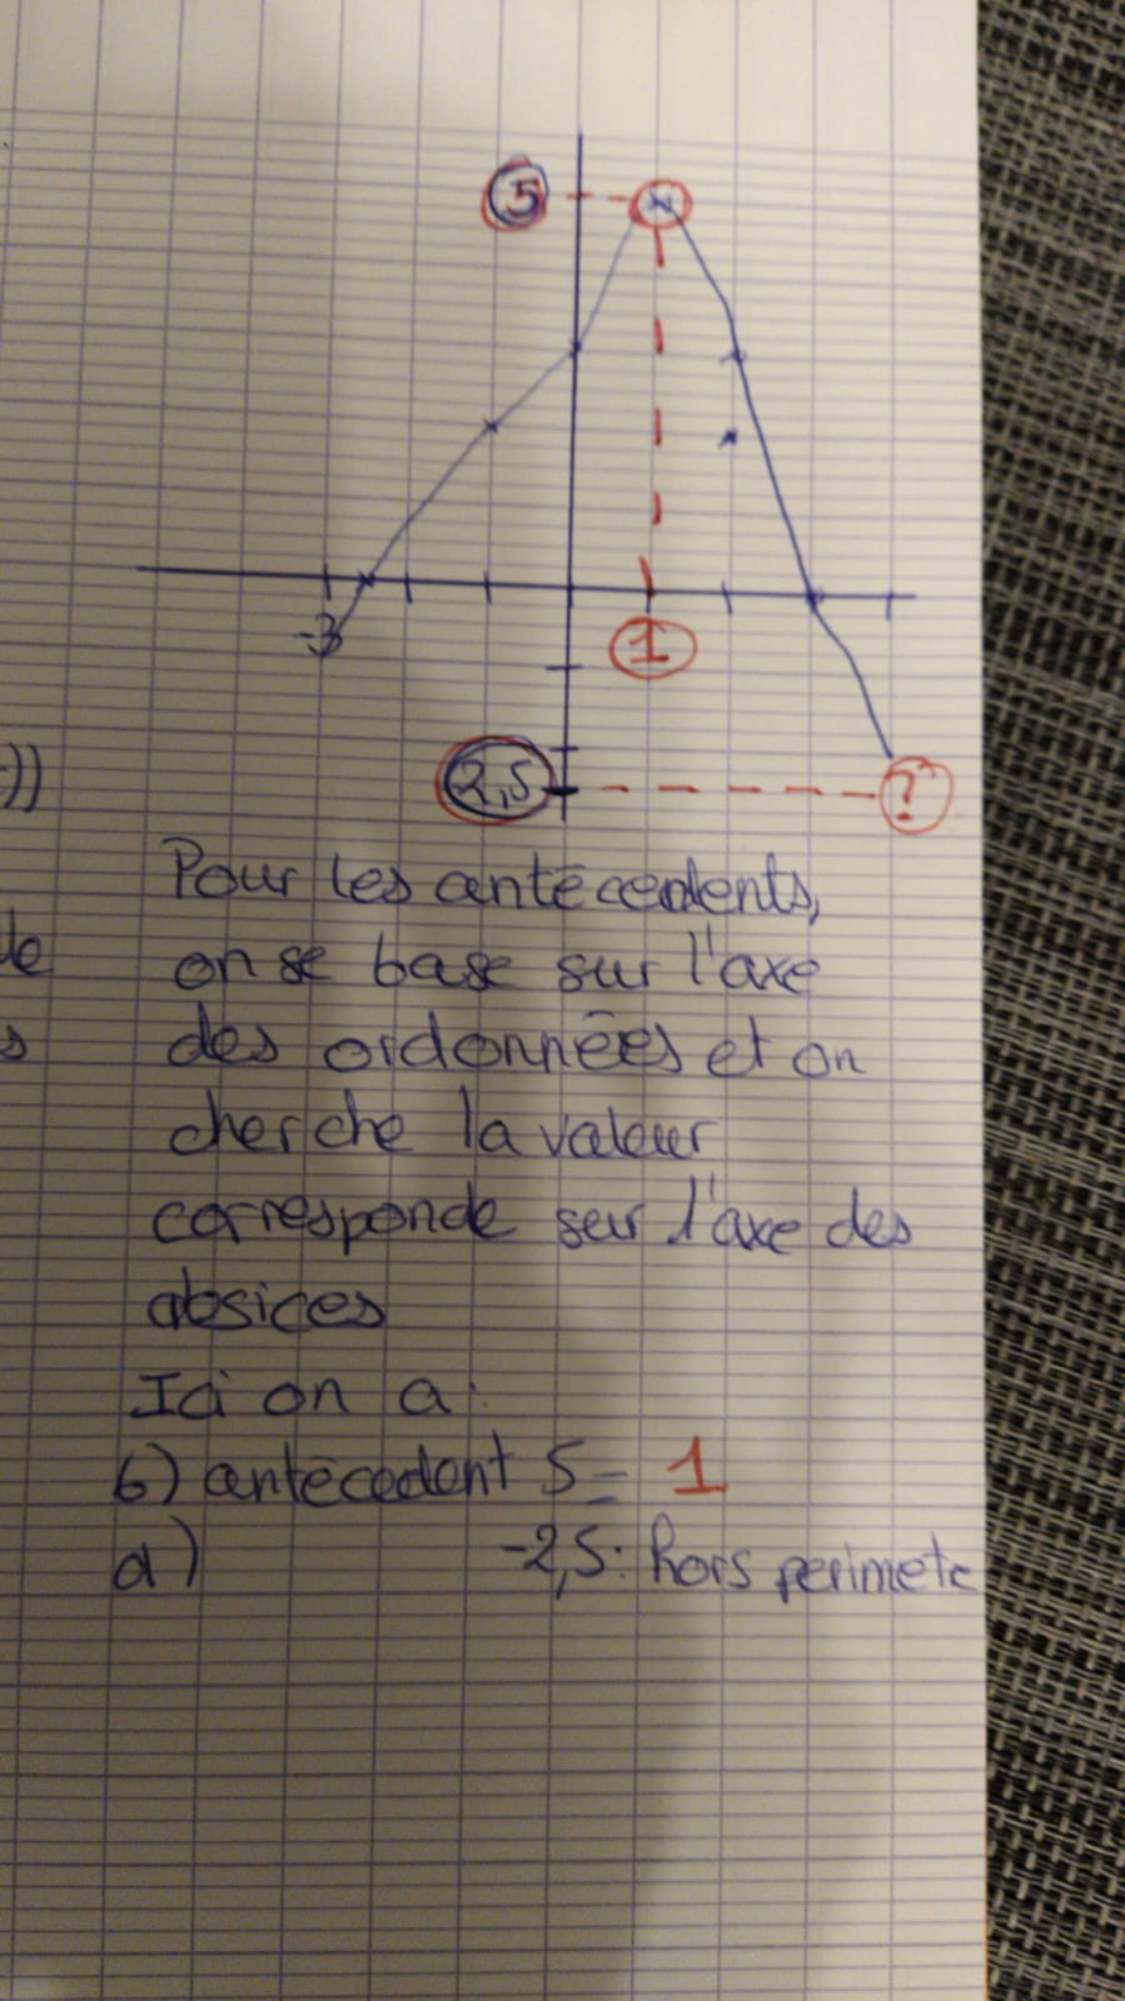 5
-3
1
2,5
?
))
Pour les antécedents,
le
on se base sur l'axe
s
des ordonnées et on
cherche la valeur
corresponde sur l'axe des
absices
Ici on a:
b) antécedent 5 = 1
d) -2,5: hors perimete